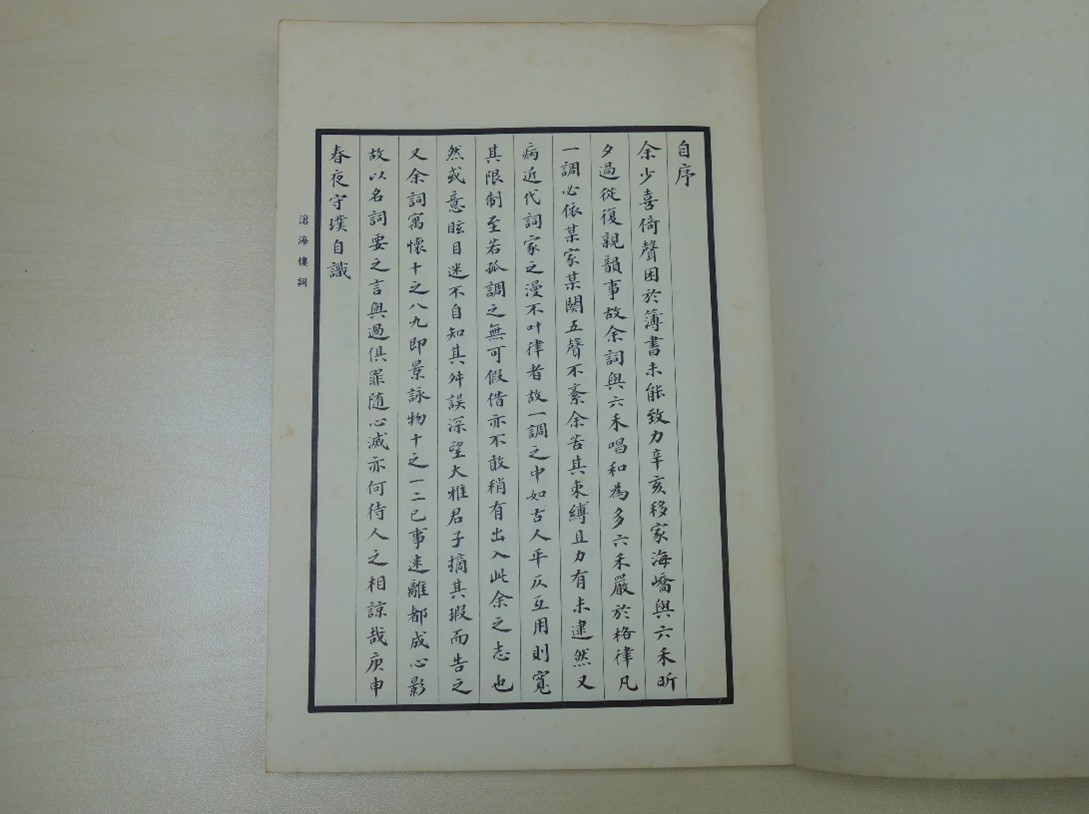 自序
余少喜倚聲困於簿書未能致力辛亥移家海嶠與六禾昕
夕過從復親韻事故余詞與六禾唱和為多六禾嚴於格律凡
一調必依某家某闋五聲不紊余苦其束縛且力有未逮然又
病近代詞家之漫不叶律者故一調之中如古人平仄互用則寬
其限制至若孤調之無可假借亦不敢稍有出入此余之志也
然或意眩目迷不自知其舛誤深望大雅君子摘其瑕而告之
又余詞寓懷十之八九即景詠物十之一二已事迷離都成心影
故以名詞要之言與過俱罪隨心滅亦何待人之相諒哉庚申
春夜守璞自識
滄海樓詞